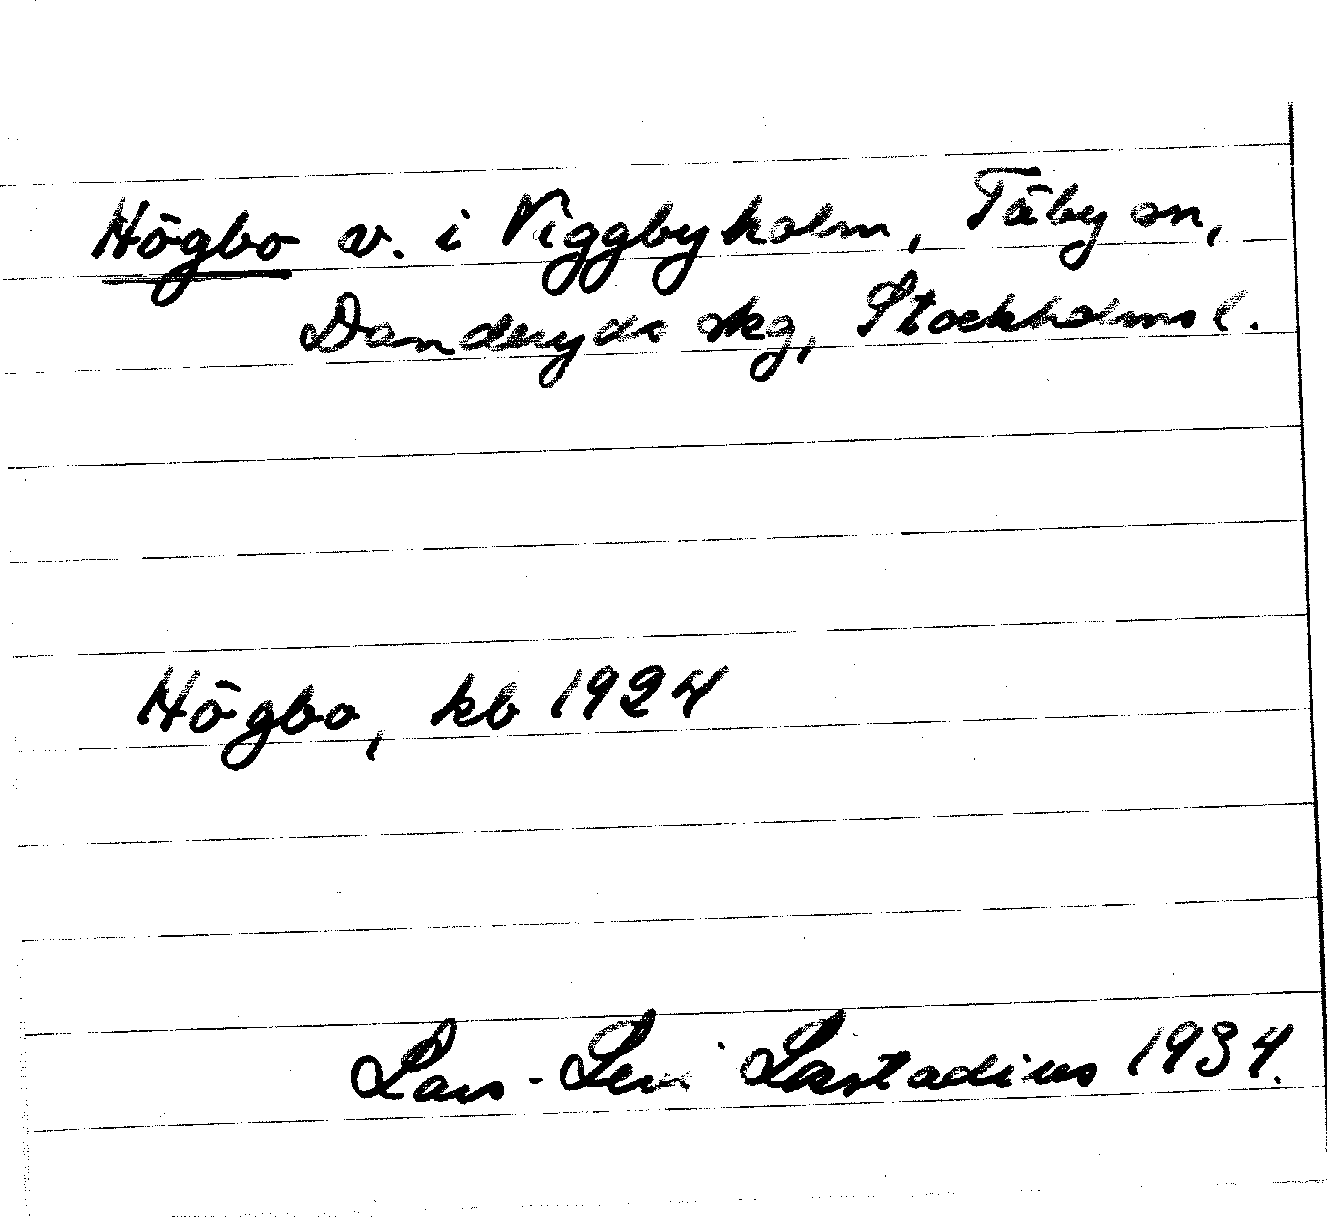 Högbo v. i Viggbyholm, Täby sn,
Danderyds skg, Stockholms l.
Högbo, kb 1924
Lars-Levi Læstadius 1934.